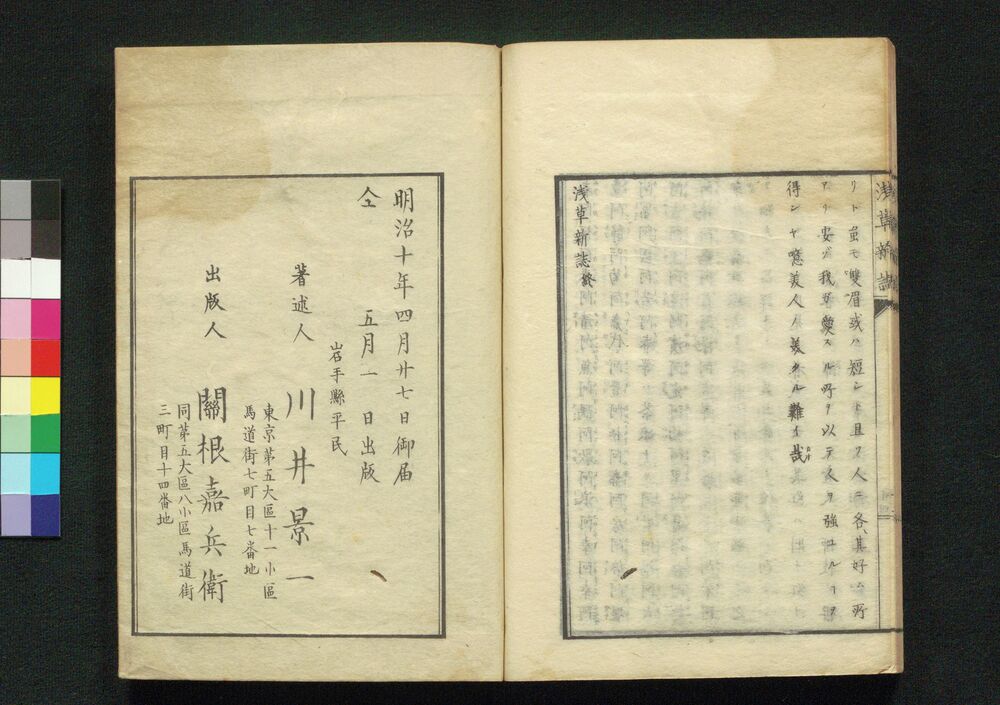 淺草新誌
リト虽モ雙眉或ハ短シト且ツ人ニ各其好ム所
アリ安ゾ我ガ愛スル所ヲ以テ人ヲ強ユルヿヲ
得ンヤ噫美人ノ美タル難イ哉
淺草新誌終
明治十年四月廿七日御届
仝 五月一日出版
岩手縣平民
著述人 川井景一
東京第五大區十一小區
馬道街七町目七番地
出版人 關根嘉兵衛
同第五大區八小區馬道街
三町目十四番地